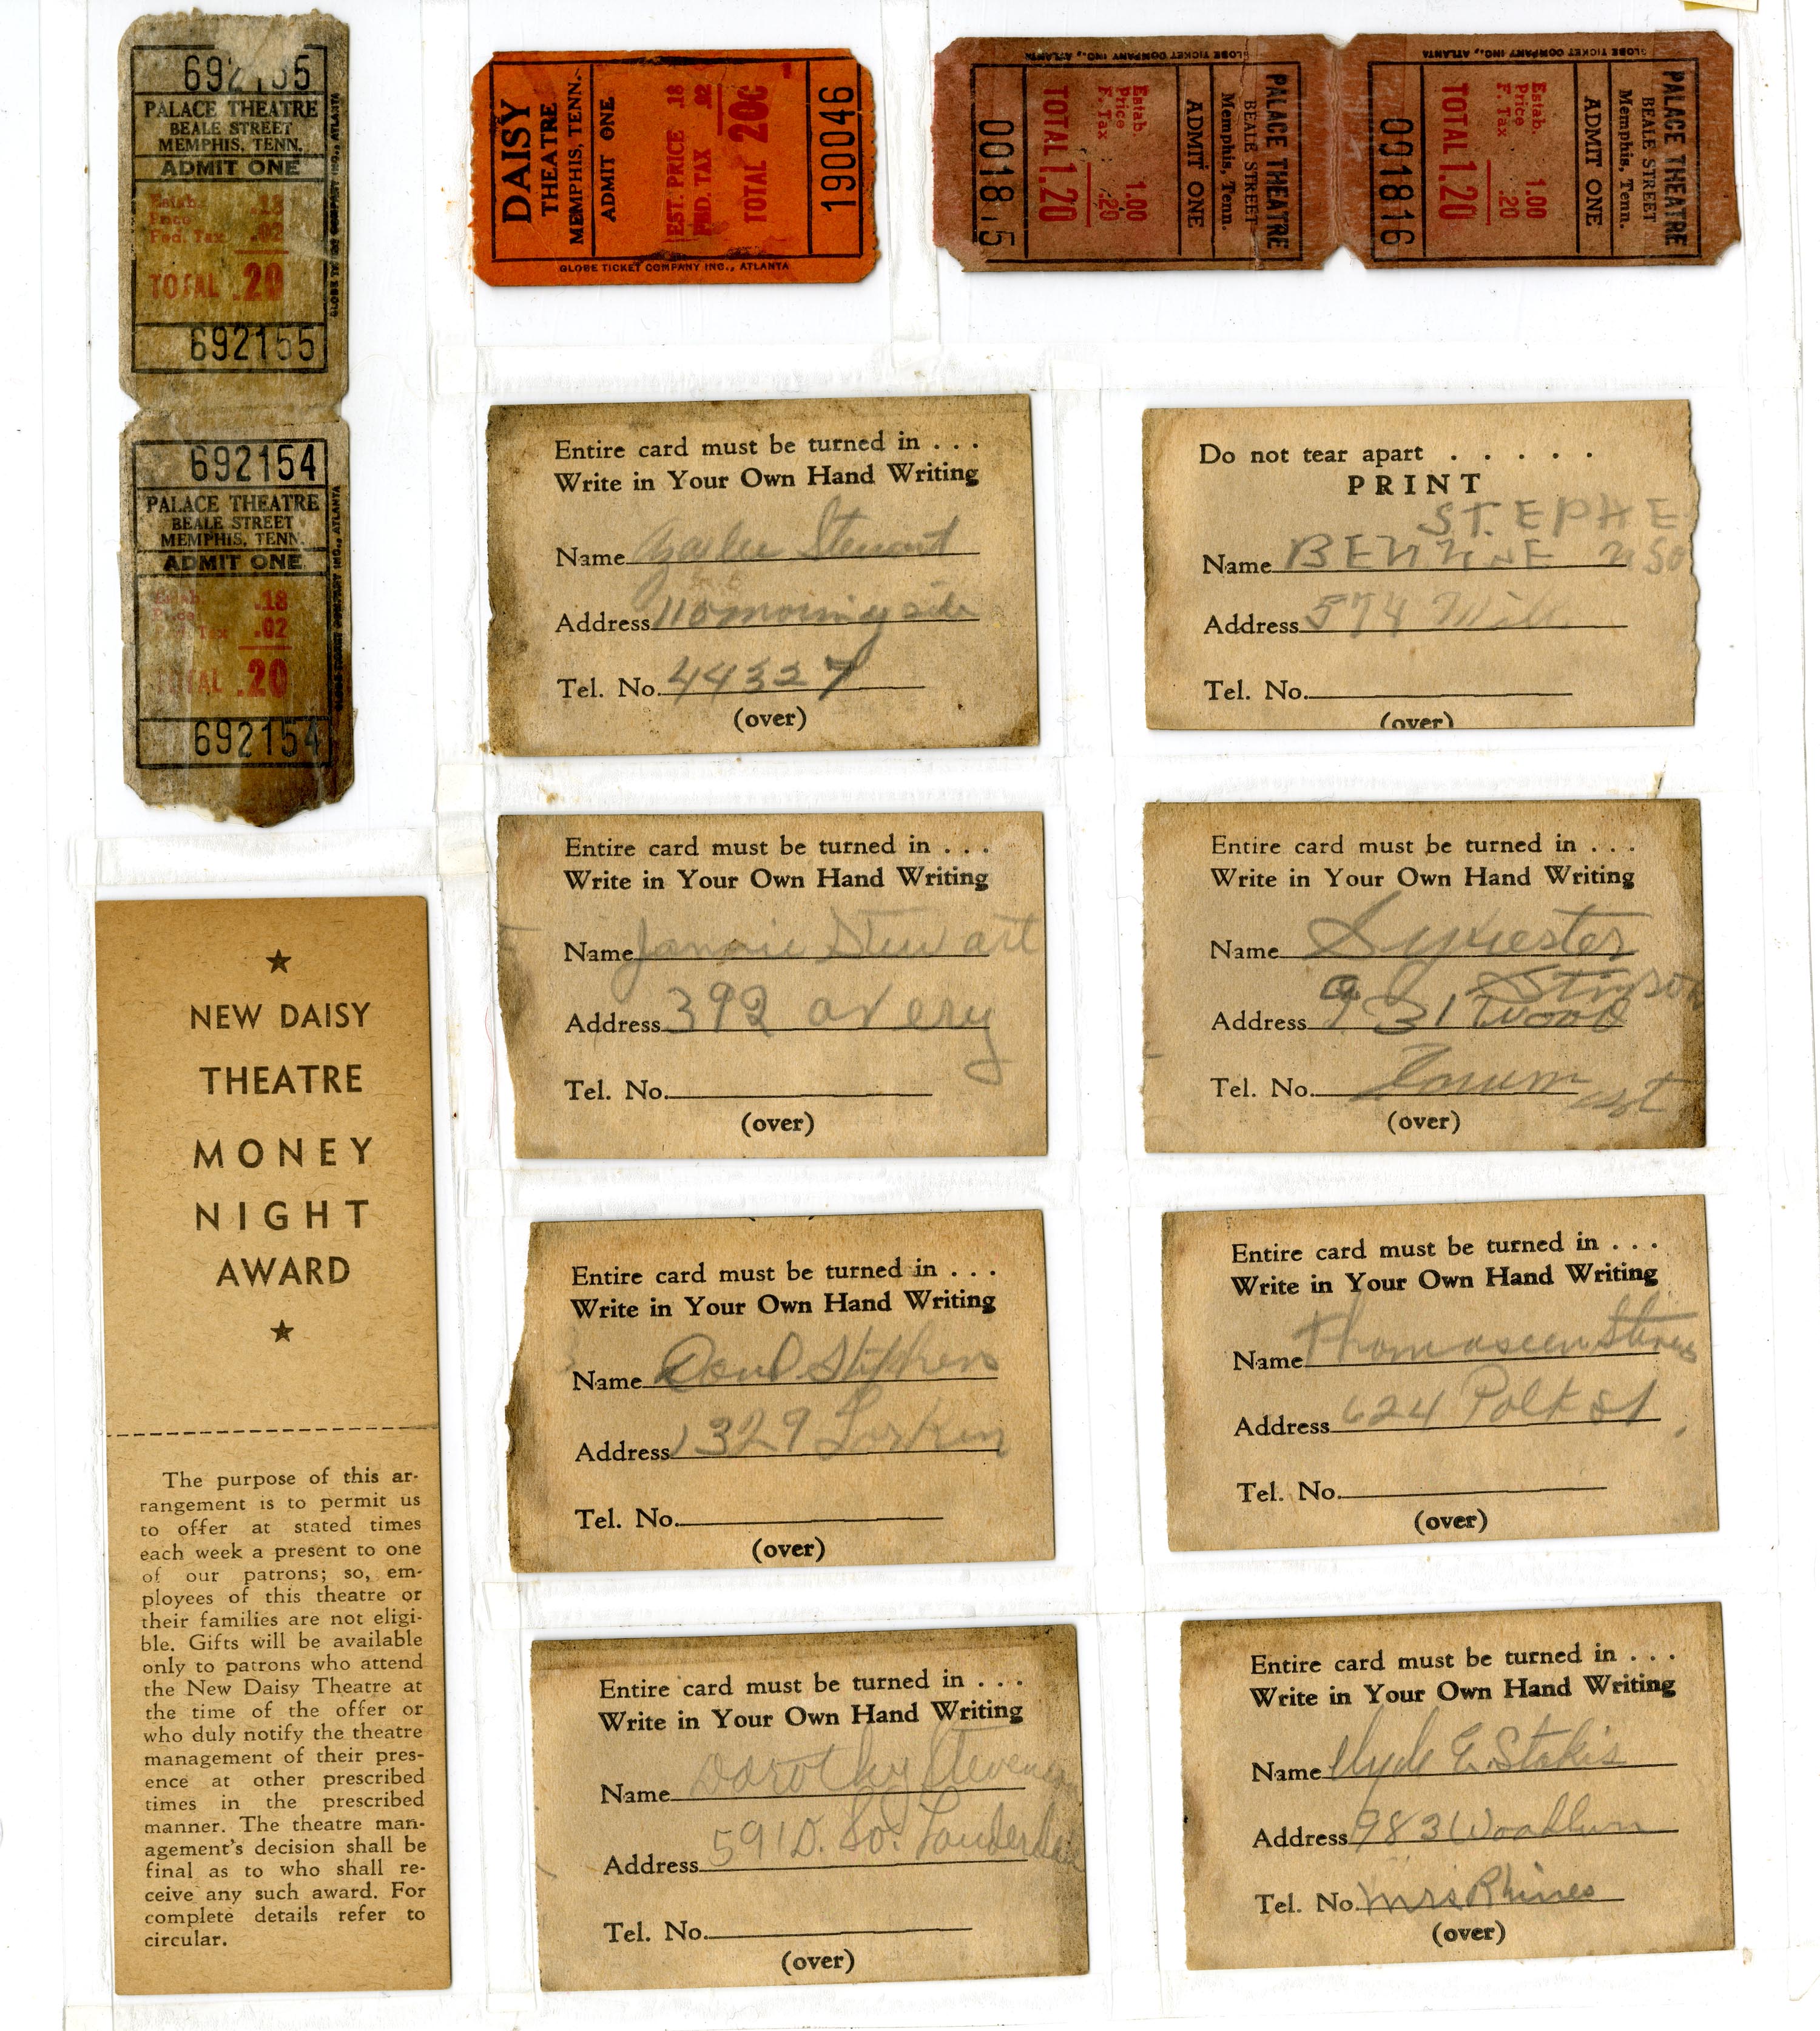 692155
PALACE THEATRE
BEALE STREET
MEMPHIS, TENN.
ADMIT ONE
Estab. .18
Price
Fed. Tax .02
TOTAL .20
692155
GLOBE TICKET COMPANY INC., ATLANTA
692154
PALACE THEATRE
BEALE STREET
MEMPHIS, TENN.
ADMIT ONE
Estab. .18
Price
Fed. Tax .02
TOTAL .20
692154
GLOBE TICKET COMPANY INC., ATLANTA
DAISY
THEATRE
MEMPHIS, TENN.
ADMIT ONE
EST. PRICE .18
FED. TAX .02
TOTAL 20c
190046
GLOBE TICKET COMPANY INC., ATLANTA
PALACE THEATRE
BEALE STREET
Memphis, Tenn.
ADMIT ONE
Estab.
Price 1.00
F. Tax .20
TOTAL 1.20
001815
GLOBE TICKET COMPANY INC., ATLANTA
PALACE THEATRE
BEALE STREET
Memphis, Tenn.
ADMIT ONE
Estab.
Price 1.00
F. Tax .20
TOTAL 1.20
001816
GLOBE TICKET COMPANY INC., ATLANTA
★
NEW DAISY
THEATRE
MONEY
NIGHT
AWARD
★
The purpose of this ar-
rangement is to permit us
to offer at stated times
each week a present to one
of our patrons; so, em-
ployees of this theatre or
their families are not eligi-
ble. Gifts will be available
only to patrons who attend
the New Daisy Theatre at
the time of the offer or
who duly notify the theatre
management of their pres-
ence at other prescribed
times in the prescribed
manner. The theatre man-
agement's decision shall be
final as to who shall re-
ceive any such award. For
complete details refer to
circular.
Entire card must be turned in . . .
Write in Your Own Hand Writing
Name Stewart
Address 110 morning side
Tel. No. 44327
(over)
Do not tear apart . . . . .
PRINT
STEPHE
Name BENNNE
Address 574
Tel. No.
(over)
Entire card must be turned in . . .
Write in Your Own Hand Writing
Name Jannie Stewart
Address 392 avery
Tel. No.
(over)
Entire card must be turned in . . .
Write in Your Own Hand Writing
Name Sylvester
Stinson
Address 931 Wood
Tel. No.
st
(over)
Entire card must be turned in . . .
Write in Your Own Hand Writing
Name Stephens
Address 1329 Larkin
Tel. No.
(over)
Entire card must be turned in . . .
Write in Your Own Hand Writing
Name Thomaseen
Address 624 Polk St
Tel. No.
(over)
Entire card must be turned in . . .
Write in Your Own Hand Writing
Name Dorothy Stevenson
Address 591 D. So. Lauderdale
Tel. No.
(over)
Entire card must be turned in . . .
Write in Your Own Hand Writing
Name Clyde E. Stokis
Address 983 Woodlawn
Tel. No. Mrs Rhines
(over)